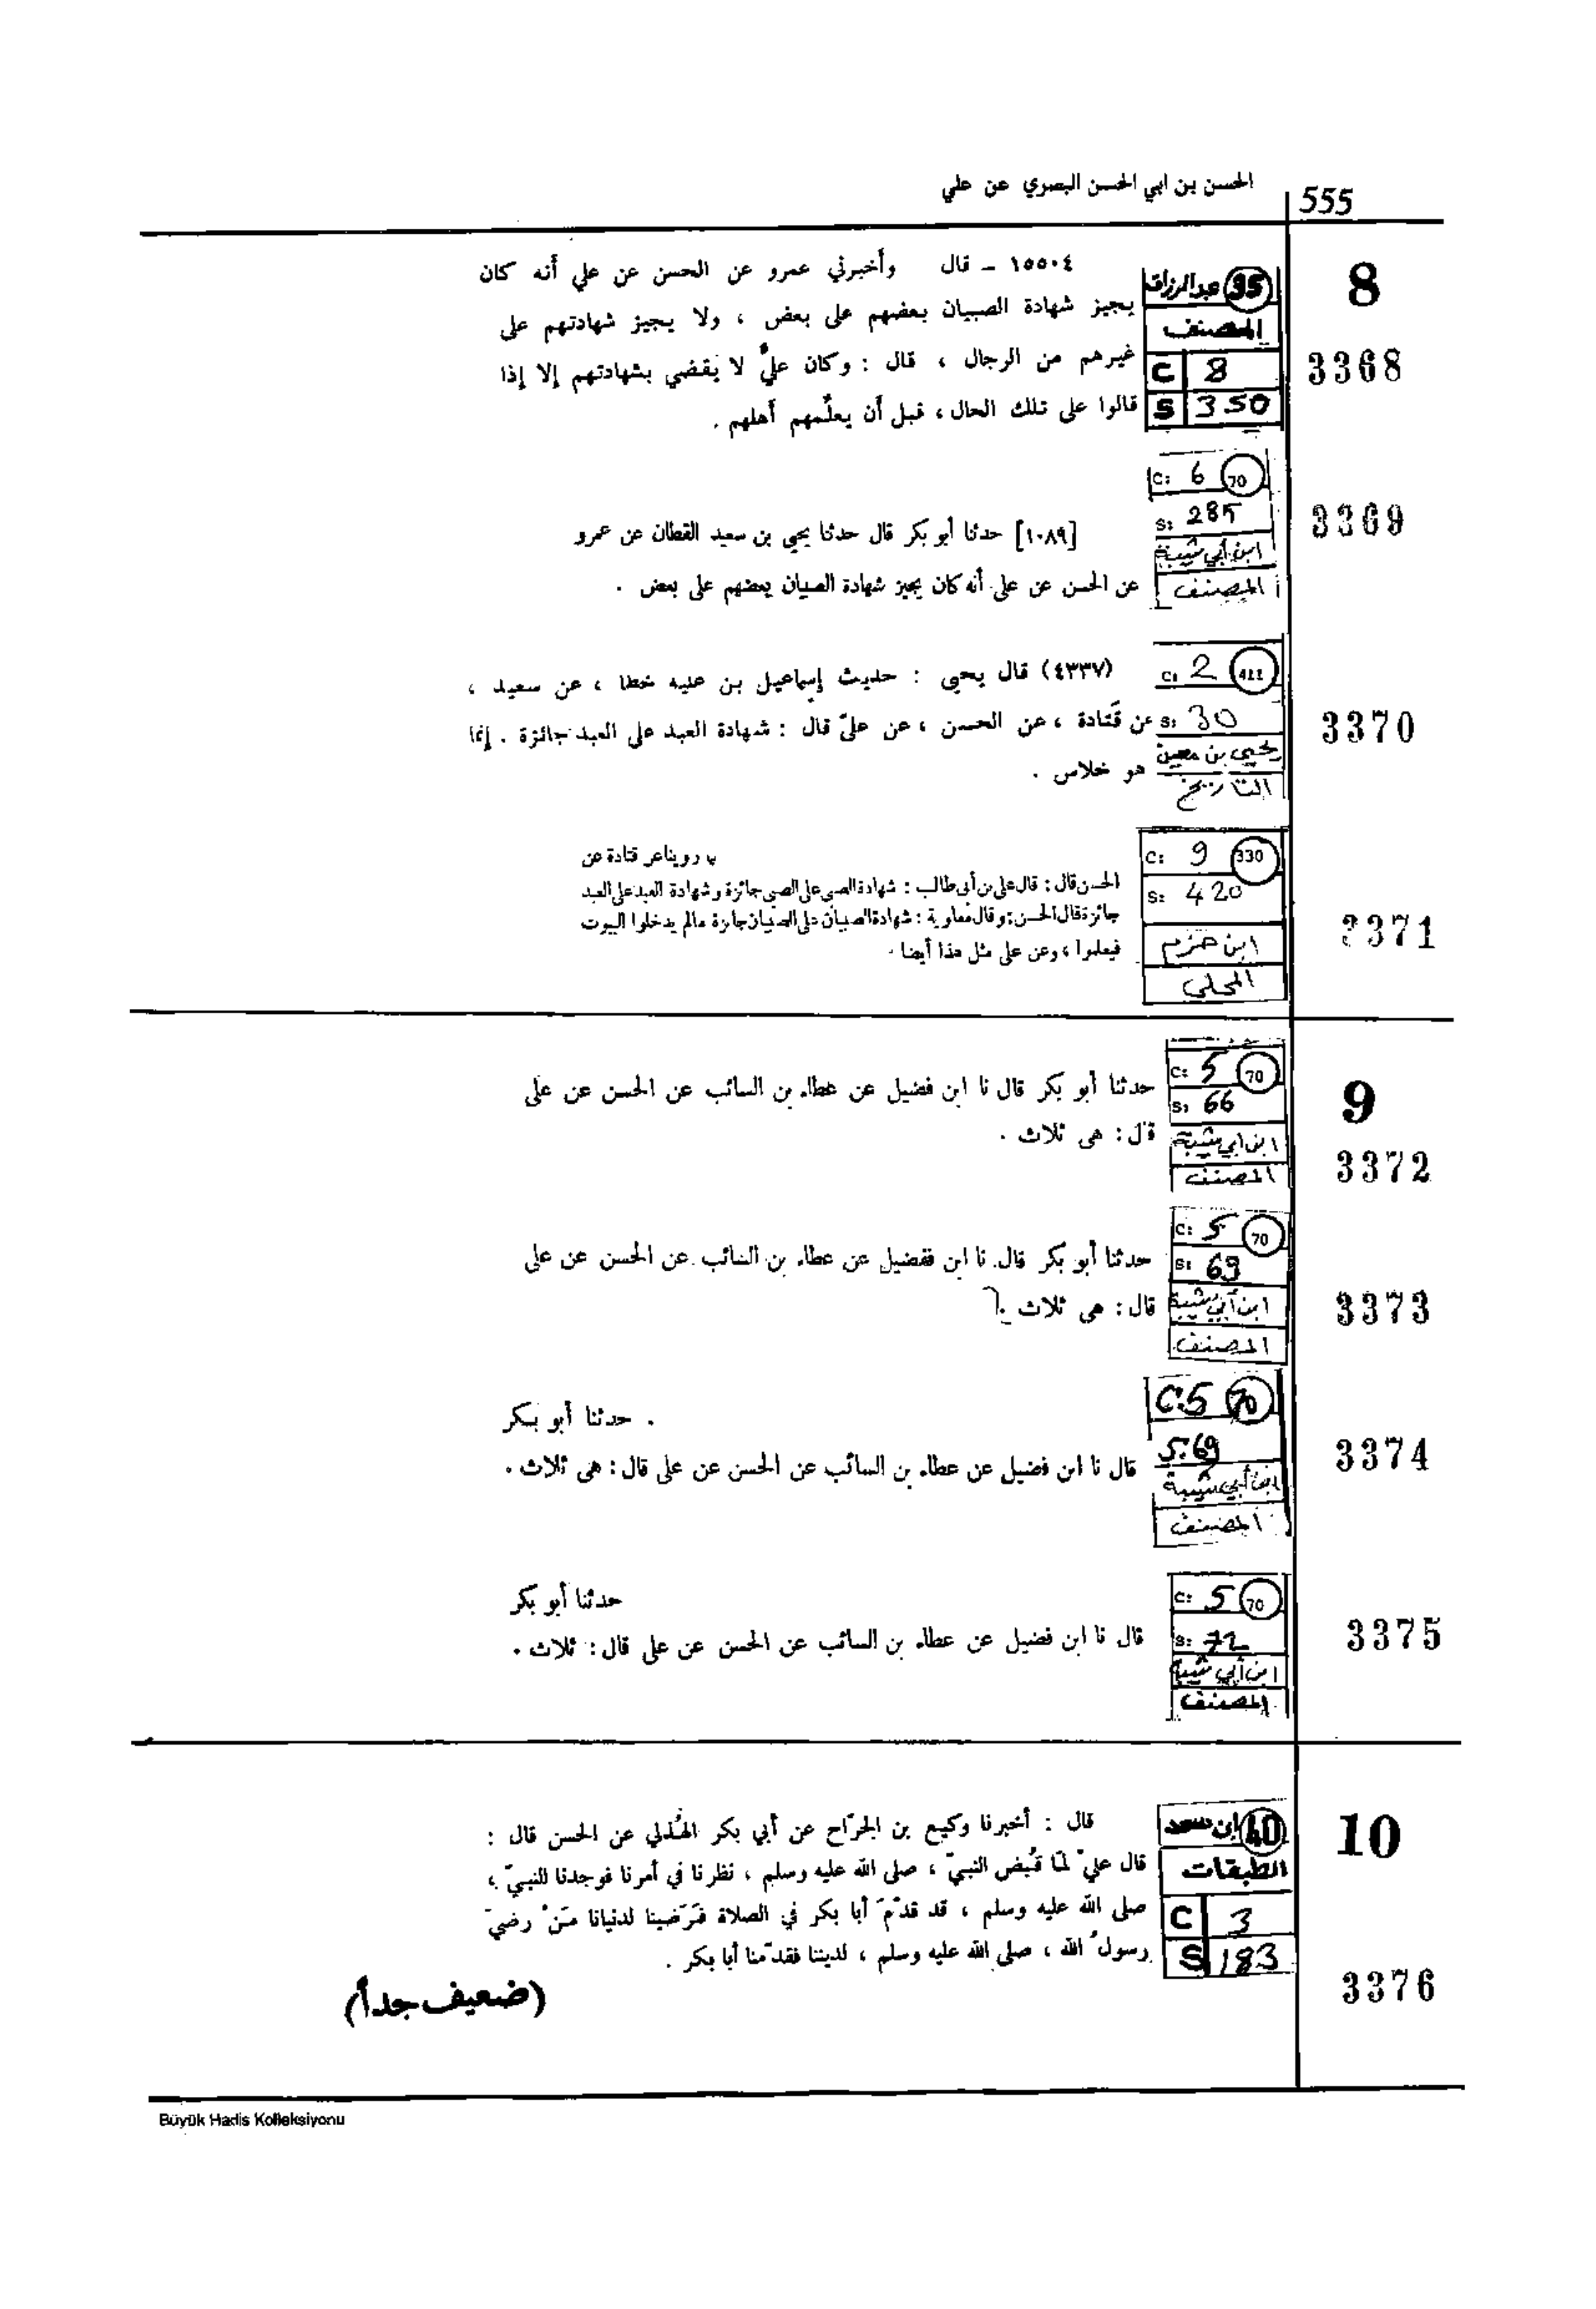 الحسن بن ابي الحسن البصري عن علي
555
8
3368
35 عبدالرزاق
المصنف
C 8
S 350
١٥٥٠٤ – قال وأخبرني عمرو عن الحسن عن علي أنه كان
يجيز شهادة الصبيان بعضهم على بعض ، ولا يجيز شهادتهم على
غيرهم من الرجال ، قال : وكان عليٌّ لا يَقضي بشهادتهم إلا إذا
قالوا على تلك الحال ، قبل أن يعلّمهم أهلهم .
3369
C: 6 70
S: 285
ابن أبي شيبة
المصنف
[١٠٨٩] حدثنا أبو بكر قال حدثنا يحيى بن سعيد القطان عن عمرو
عن الحسن عن على أنه كان يجيز شهادة الصبيان بعضهم على بعض .
3370
C: 2 411
S: 30
يحيى بن معين
التاريخ
(٤٣٣٧) قال يحيى : حديث إسماعيل بن عليه خطا ، عن سعيد ،
عن قَتادة ، عن الحسن ، عن عليّ قال : شهادة العبد على العبد جائزة . إنما
هو خلاس .
3371
C: 9 330
S: 420
ابن حزم
المحلى
روينا عن قتادة عن
الحسن قال : قال على بن أبى طالب : شهادة الصبى على الصبى جائزة وشهادة العبد على العبد
جائزة قال الحسن : وقال معاوية : شهادة الصبيان على الصبيان جائزة مالم يدخلوا البيوت
فيعلموا ، وعن على مثل هذا أيضا .
9
3372
C: 5 70
S: 66
ابن ابي شيبة
المصنف
حدثنا أبو بكر قال نا ابن فضيل عن عطاء بن السائب عن الحسن عن على
قال : هى ثلاث .
3373
C: 5 70
S: 69
ابن أبي شيبة
المصنف
حدثنا أبو بكر قال نا ابن ففضيل عن عطاء بن السائب عن الحسن عن على
قال : هى ثلاث .
3374
C:5 70
S:69
ابن أبي شيبة
المصنف
. حدثنا أبو بكر
قال نا ابن فضيل عن عطاء بن السائب عن الحسن عن على قال : هى ثلاث .
3375
C: 5 70
S: 72
ابن أبي شيبة
المصنف
حدثنا أبو بكر
قال نا ابن فضيل عن عطاء بن السائب عن الحسن عن على قال : ثلاث .
10
3376
40 ابن سعد
الطبقات
C 3
S 183
قال : أخبرنا وكيع بن الجرّاح عن أبي بكر الهُذلي عن الحسن قال :
قال عليّ لمّا قُبض النبيّ ، صلى الله عليه وسلم ، نظرنا في أمرنا فوجدنا النبيّ ،
صلى الله عليه وسلم ، قد قدّمَ أبا بكر في الصلاة فرَضينا لدنيانا مَنْ رضيَ
رسولُ الله ، صلى الله عليه وسلم ، لديننا فقدّمنا أبا بكر .
(ضعيف جداً)
Büyük Hadis Kolleksiyonu